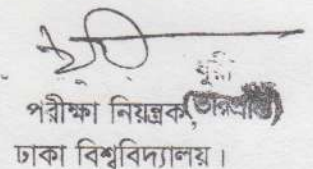 পরীক্ষা নিয়ন্ত্রক(ভারপ্রাপ্ত)
ঢাকা বিশ্ববিদ্যালয়।